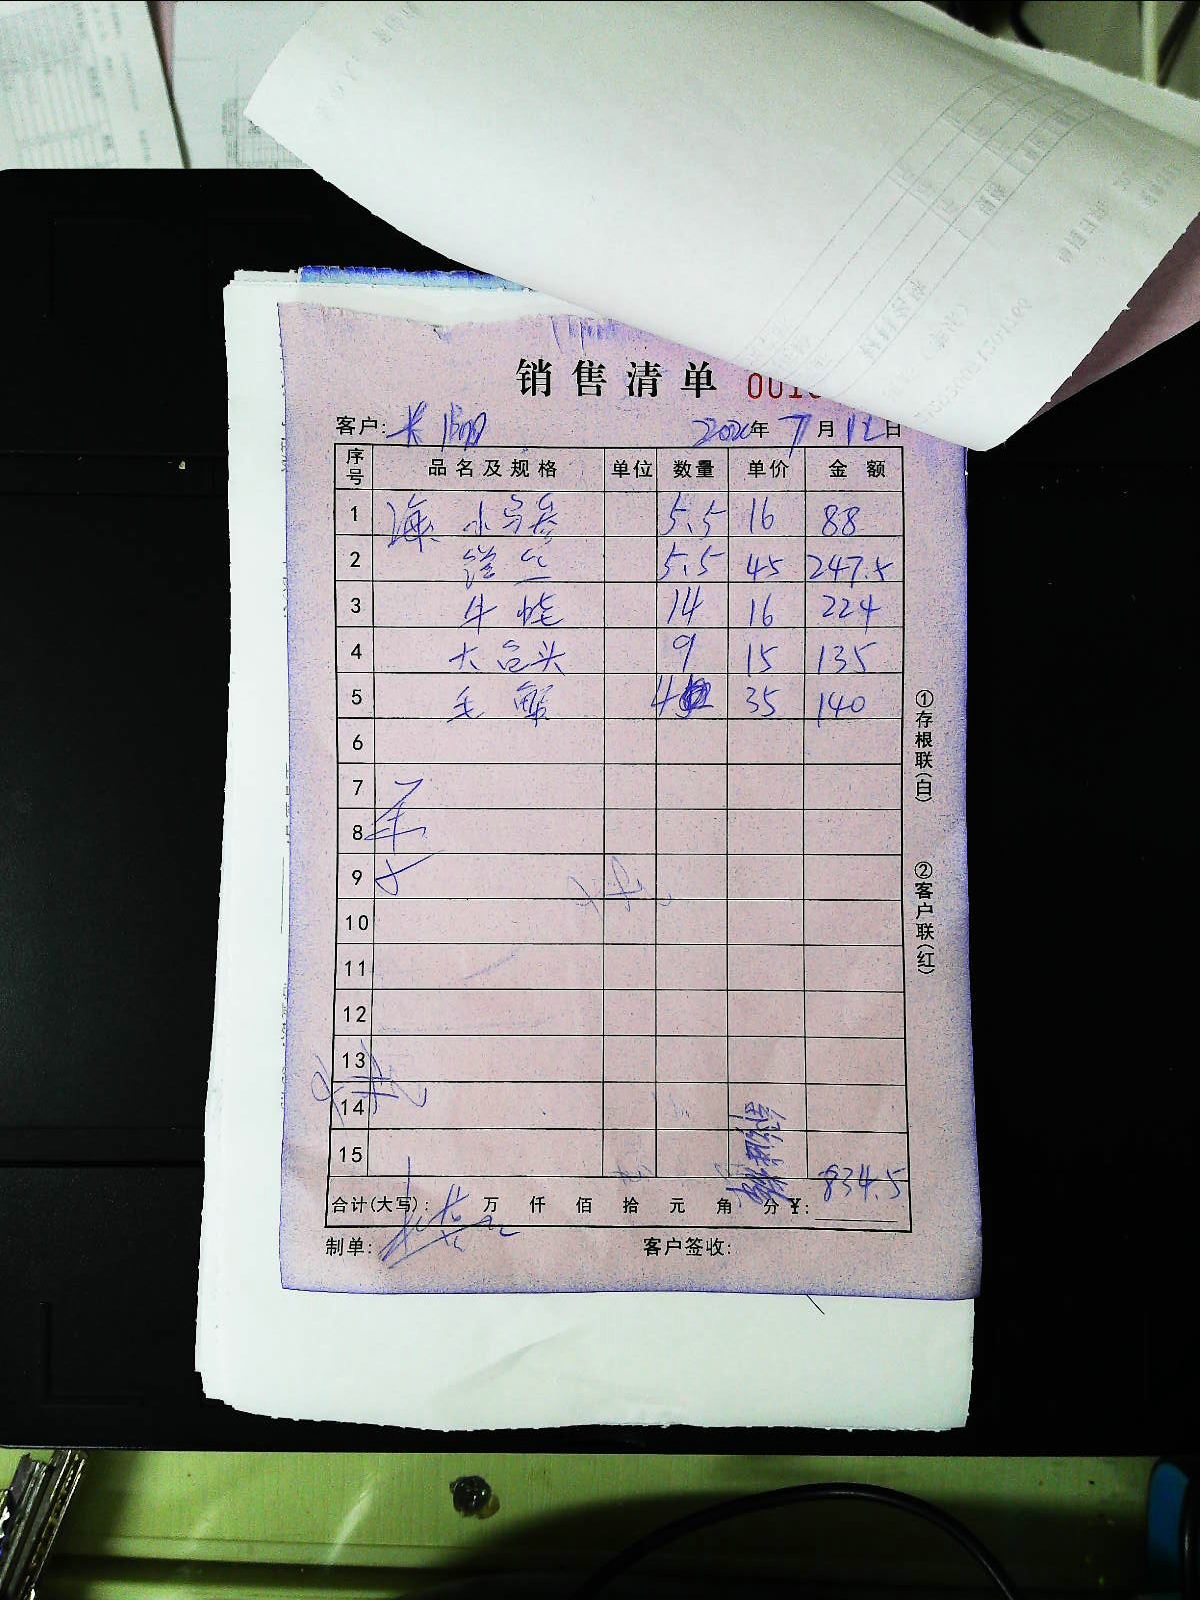 销售清单 001
客户: 2020年7月12日
序号 品名及规格 单位 数量 单价 金额
1 海 小乌参 5.5 16 88
2 5.5 45 247.5
3 牛 14 16 224
4 大包头 9 15 135
5 毛蟹 4 35 140
6
7
8
9
10
11
12
13
14
15
合计(大写): 万 仟 佰 拾 元 角 分 ¥: 834.5
制单: 客户签收:
①存根联(白)
②客户联(红)